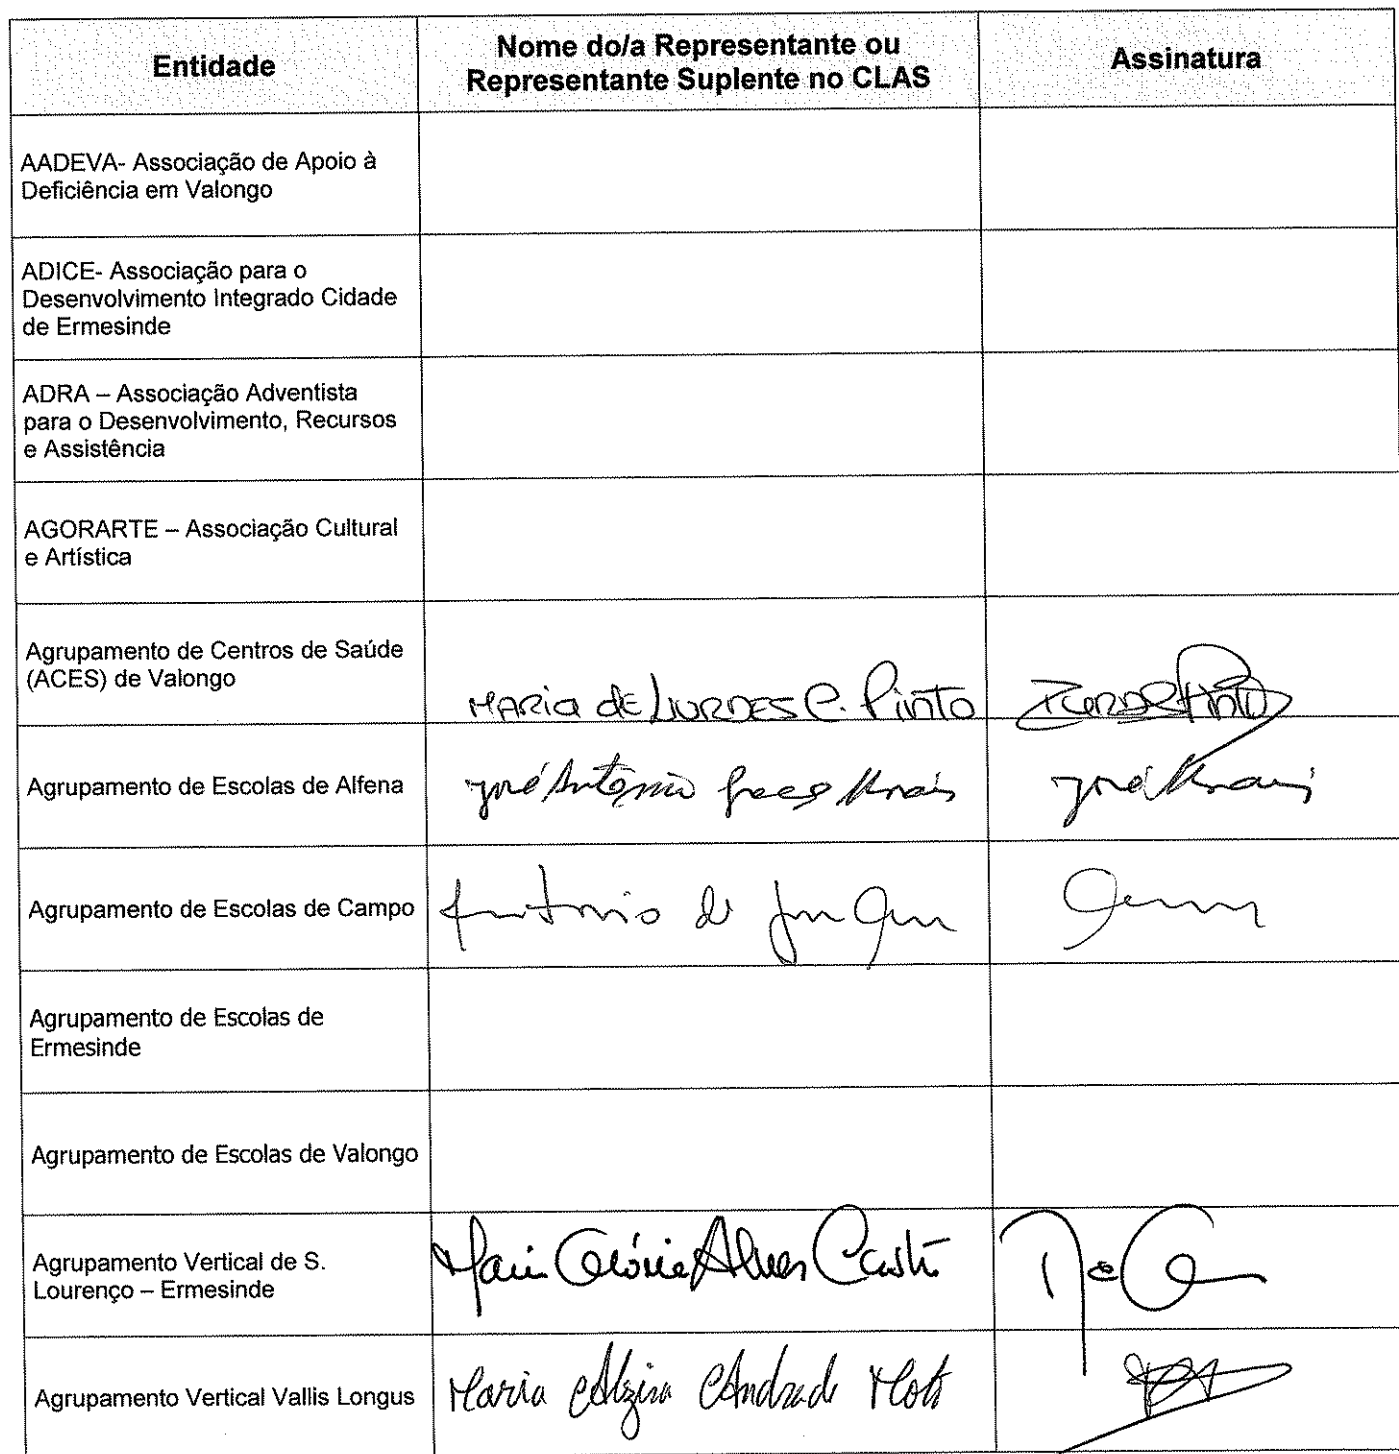 Entidade
Nome do/a Representante ou
Representante Suplente no CLAS
Assinatura
AADEVA- Associação de Apoio à
Deficiência em Valongo
ADICE- Associação para o
Desenvolvimento Integrado Cidade
de Ermesinde
ADRA – Associação Adventista
para o Desenvolvimento, Recursos
e Assistência
AGORARTE – Associação Cultural
e Artística
Agrupamento de Centros de Saúde
(ACES) de Valongo
MARIA DE LURDES C. Pinto
Agrupamento de Escolas de Alfena
José António
José
Agrupamento de Escolas de Campo
António de
Agrupamento de Escolas de
Ermesinde
Agrupamento de Escolas de Valongo
Agrupamento Vertical de S.
Lourenço – Ermesinde
Maria Glória Alves Castro
Agrupamento Vertical Vallis Longus
Maria Alzira Andrade Mota